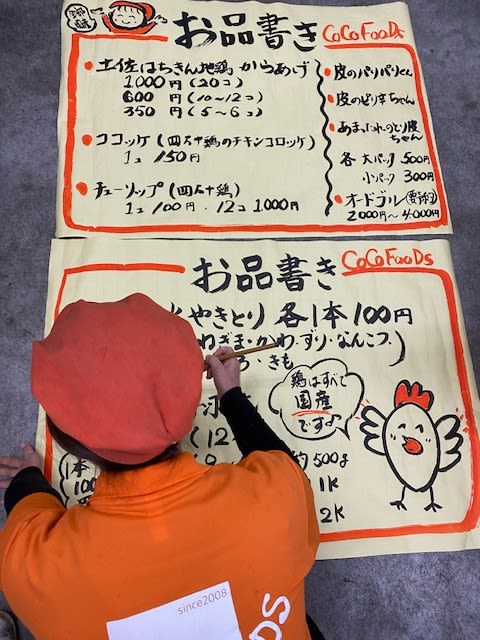 お品書き CoCo FooDs
土佐はちきん地鶏 からあげ
1,000円 (20コ)
600円 (10〜12コ)
350円 (5〜6コ)
ココッケ (四万十鶏のチキンコロッケ)
1コ 150円
チューリップ (四万十鶏)
1コ 100円・12コ 1,000円
皮のパリパリくん
皮のピリ辛ちゃん
あまっだれのとり皮ちゃん
各 大パック 500円
小パック 300円
オードブル(要予約)
2,000円〜4,000円
お品書き CoCo FooDs
やきとり 各1本 100円
ねぎま・かわ・ずり・なんこつ・
・きも)
鶏はすべて
国産
です♪
(12
約500g
1K
2K
1本
100
since2008
DS